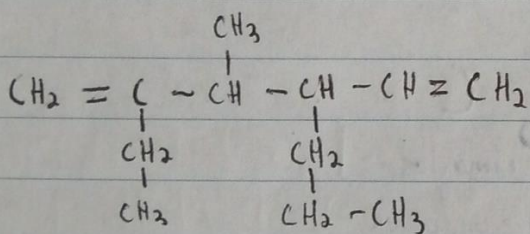 CH3
CH2 = C - CH - CH - CH = CH2
CH2 CH2
CH3 CH2 - CH3